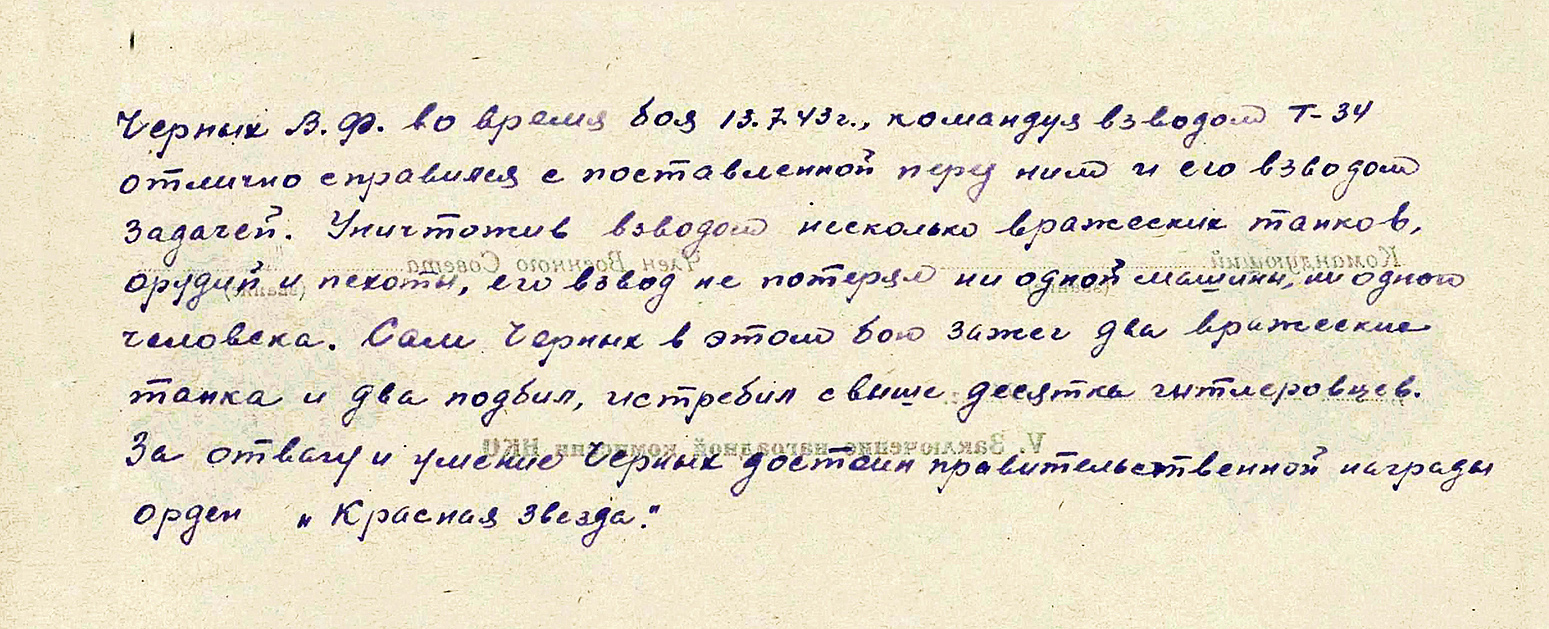 Черных В. Ф. во время боя 13.7.43г., командуя взводом Т-34
отлично справился с поставленной перед ним и его взводом
задачей. Уничтожив взводом несколько вражеских танков,
Член Военного Совета Командующий
орудий и пехоты, его взвод не потерял ни одной машины, ни одного
(звание) (звание)
человека. Сам Черных в этом бою зажег два вражеские
танка и два подбил, истребил свыше десятка гитлеровцев.
V. Заключение наградной комиссии НКО
За отвагу и умение Черных достоин правительственной награды
орден „Красная звезда."